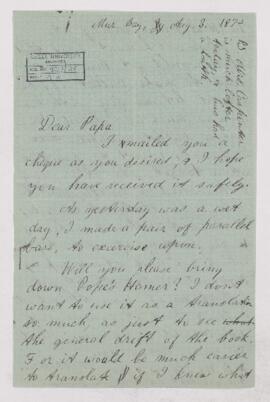 Mur. Bay, Aug. 3. 187
Mrs Carpenter
is much better
today, & has had
a bath
Dear Papa
I mailed you a
cheque as you desired, & I hope
you have received it safely.
As yesterday was a wet
day, I made a pair of parallel
bars, to exercise upon.
Will you please bring
down Pope's Homer? I don't
want to use it as a translation
so much, as just to see what
the general drift of the book.
For it would be much easier
to translate if I knew what